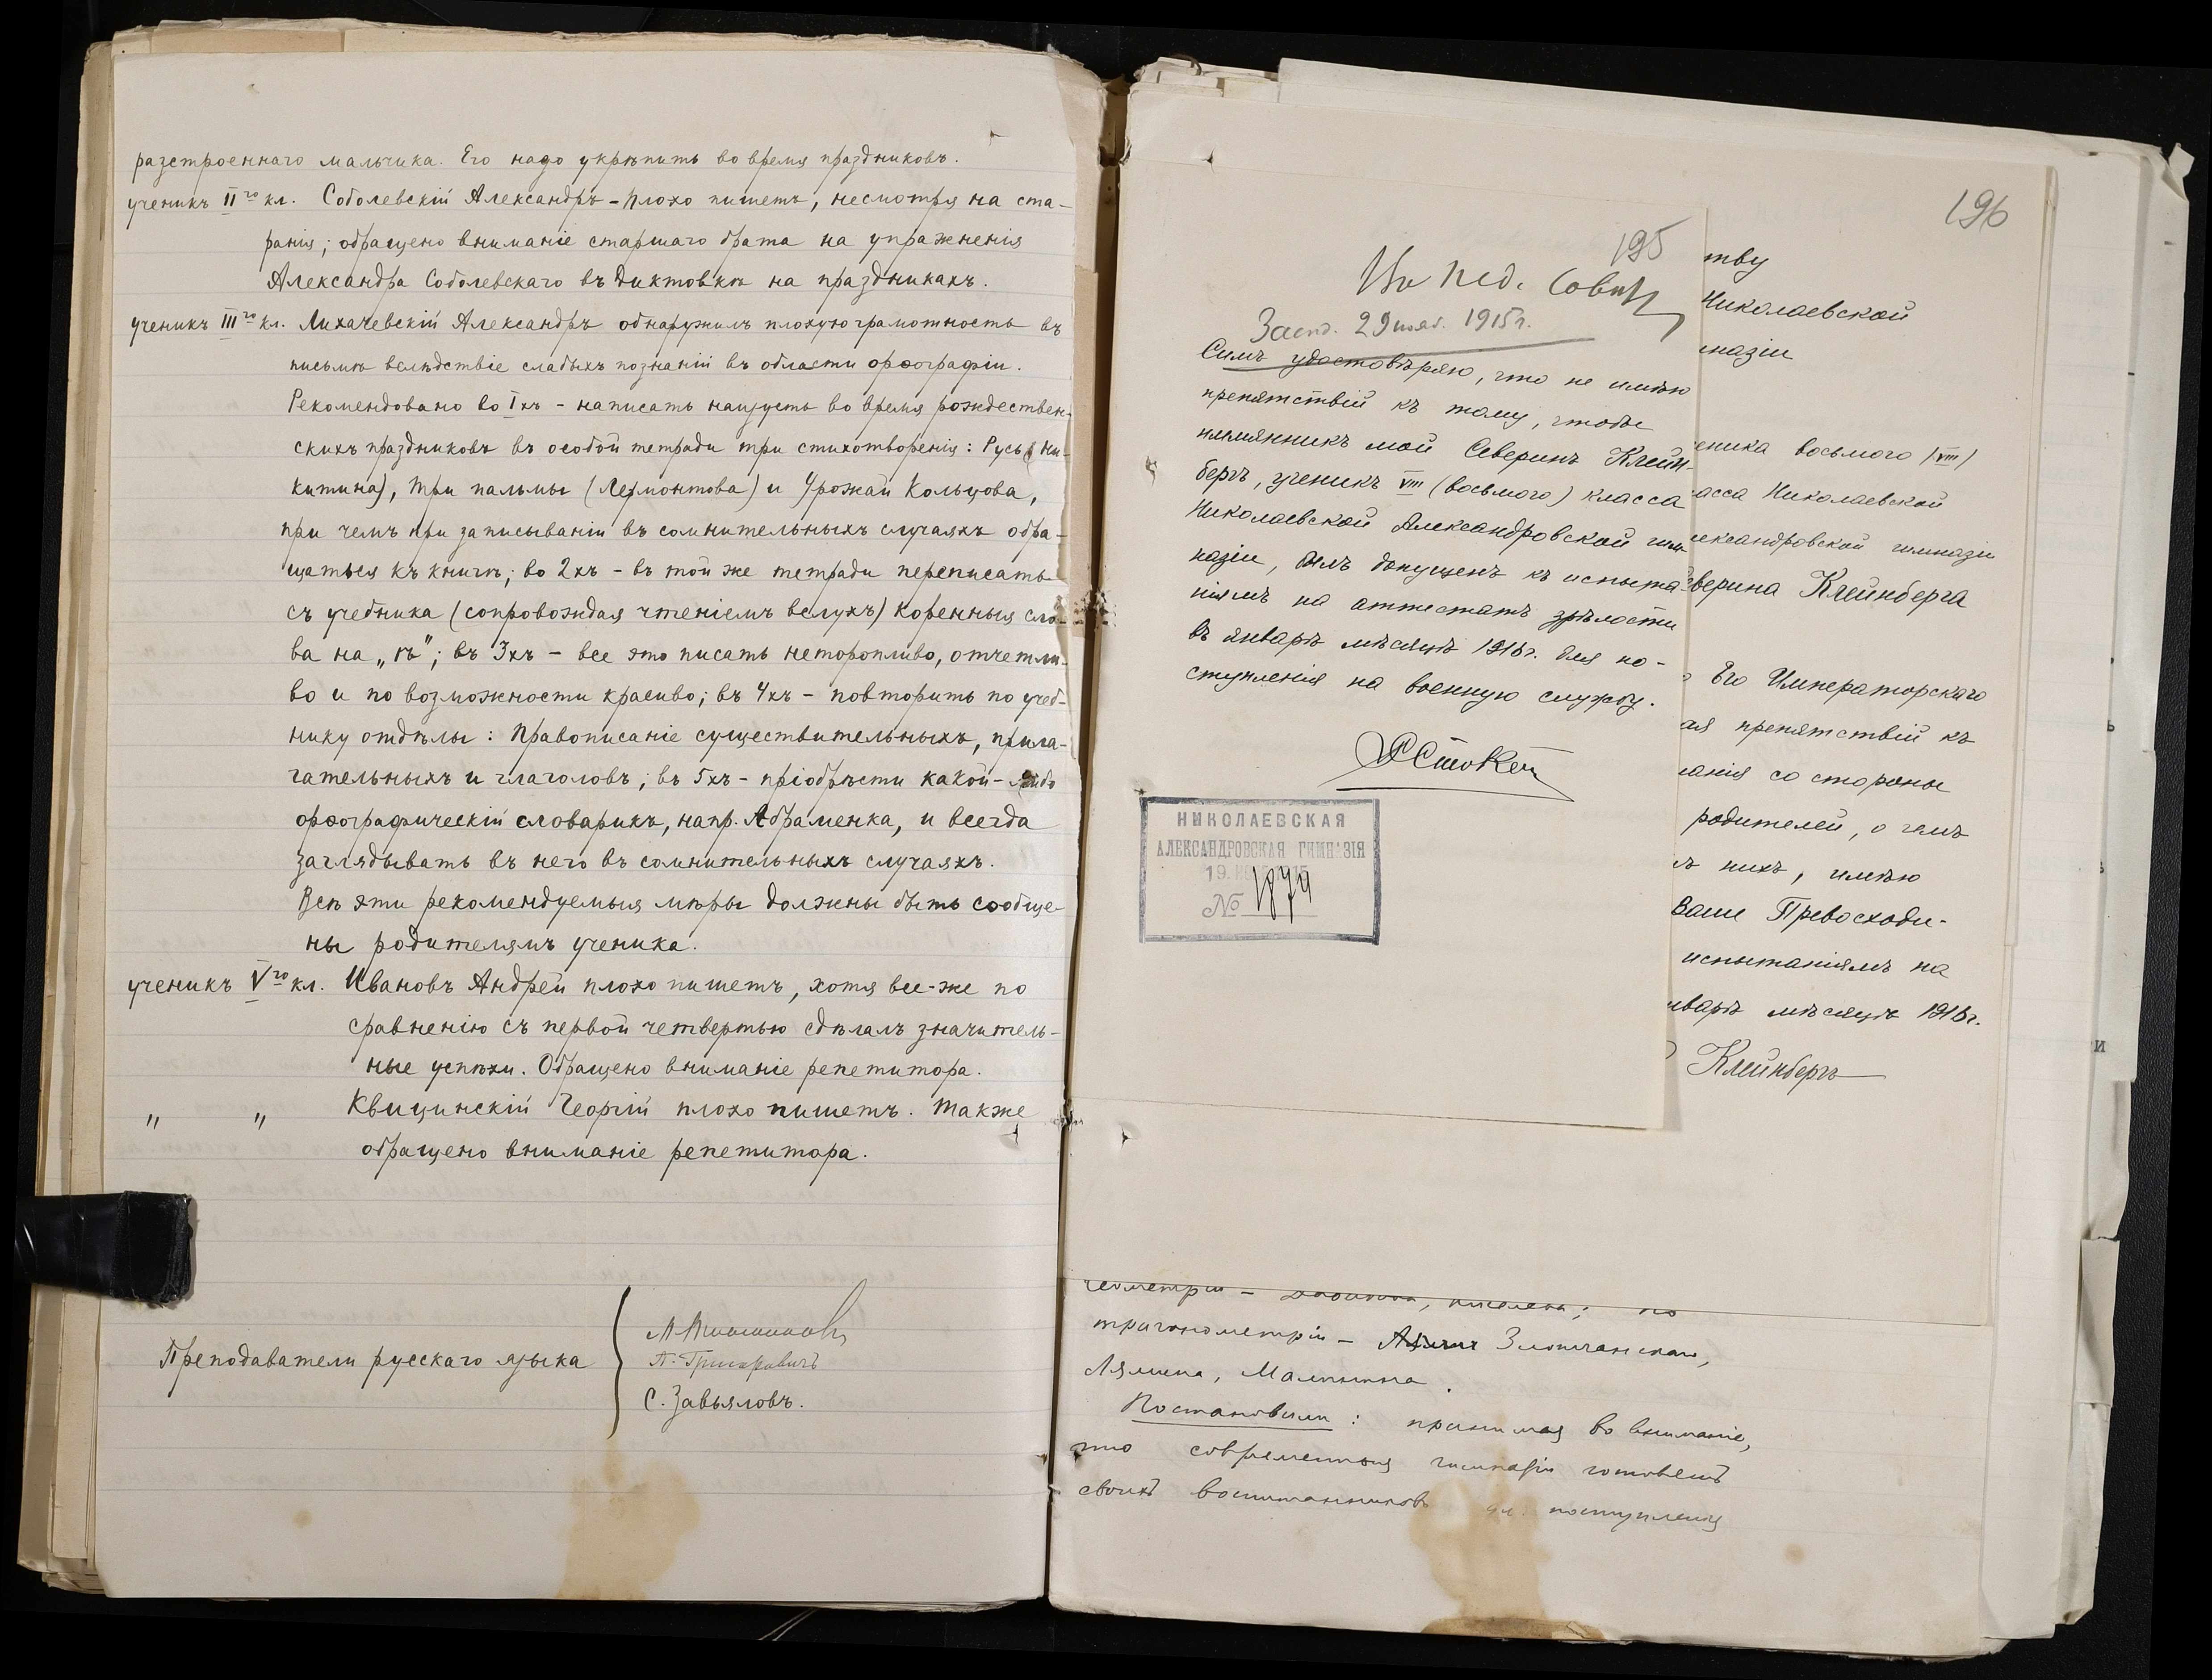 разстроеннаго мальчика. Его надо укрѣпить во время праздниковъ.
ученикъ II го кл. Соболевскій Александръ – плохо пишетъ, несмотря на ста-
ранія; обращено вниманіе старшаго брата на упражненія
Александра Соболевскаго въ диктовкѣ на праздникахъ.
ученикъ III го кл. Лихачевскій Александръ обнаружилъ плохую грамотность въ
письмѣ вслѣдствіе слабыхъ познаній въ области орѳографіи.
Рекомендовано во I хъ – написать наизусть во время рождествен-
скихъ праздниковъ въ особой тетради три стихотворенія: Русь (Ни-
китина), Три пальмы (Лермонтова) и Урожай Кольцова,
при чемъ при записываніи въ сомнительныхъ случаяхъ обра-
щаться къ книгѣ; во 2хъ – въ той же тетради переписать
съ учебника (сопровождая чтеніемъ вслухъ) коренныя сло-
ва на „ѣ"; въ 3хъ – все это писать неторопливо, отчетли-
во и по возможности красиво; въ 4хъ – повторить по учеб-
нику отдѣлы: Правописаніе существительныхъ, прила-
гательныхъ и глаголовъ; въ 5хъ – пріобрѣсти какой-либо
орѳографическій словарикъ, напр. Абраменка, и всегда
заглядывать въ него въ сомнительныхъ случаяхъ.
Всѣ эти рекомендуемыя мѣры должны быть сообще-
ны родителямъ ученика.
ученикъ V го кл. Ивановъ Андрей плохо пишетъ, хотя все-же по
сравненію съ первой четвертью сдѣлалъ значитель-
ные успѣхи. Обращено вниманіе репетитора.
„ „ Квицинскій Георгій плохо пишетъ. Также
обращено вниманіе репетитора.
Преподаватели русскаго языка
П. Григоровичъ
С. Завьяловъ.
195
Въ пед. Совѣтъ
Засѣд. 29 нояб. 1915 г.
Симъ удостовѣряю, что не имѣю
препятствій къ тому, чтобы
племянникъ мой Северинъ Клейн-
бергъ, ученикъ VIII (восьмого) класса
Николаевской Александровской гим-
назіи, былъ допущенъ къ испыта-
ніямъ на аттестатъ зрѣлости
въ январѣ мѣсяцѣ 1916 г. для по-
ступленія на военную службу.
НИКОЛАЕВСКАЯ
АЛЕКСАНДРОВСКАЯ ГИМНАЗІЯ
№ 1874
196
тву
Николаевской
мназіи
еника восьмого (VIII)
асса Николаевской
лександровской гимназіи
еверина Клейнберга
Его Императорскаго
ая препятствій къ
ланія со стороны
родителей, о чемъ
ъ нихъ, имѣю
Ваше Превосходи-
испытаніямъ на
нварѣ мѣсяцѣ 1916 г.
Клейнбергъ
тригонометріи – Злотчанскаго,
Лямина, Малинина.
Постановили: принимая во вниманіе,
что современная гимназія готовитъ
своихъ воспитанниковъ для поступленія